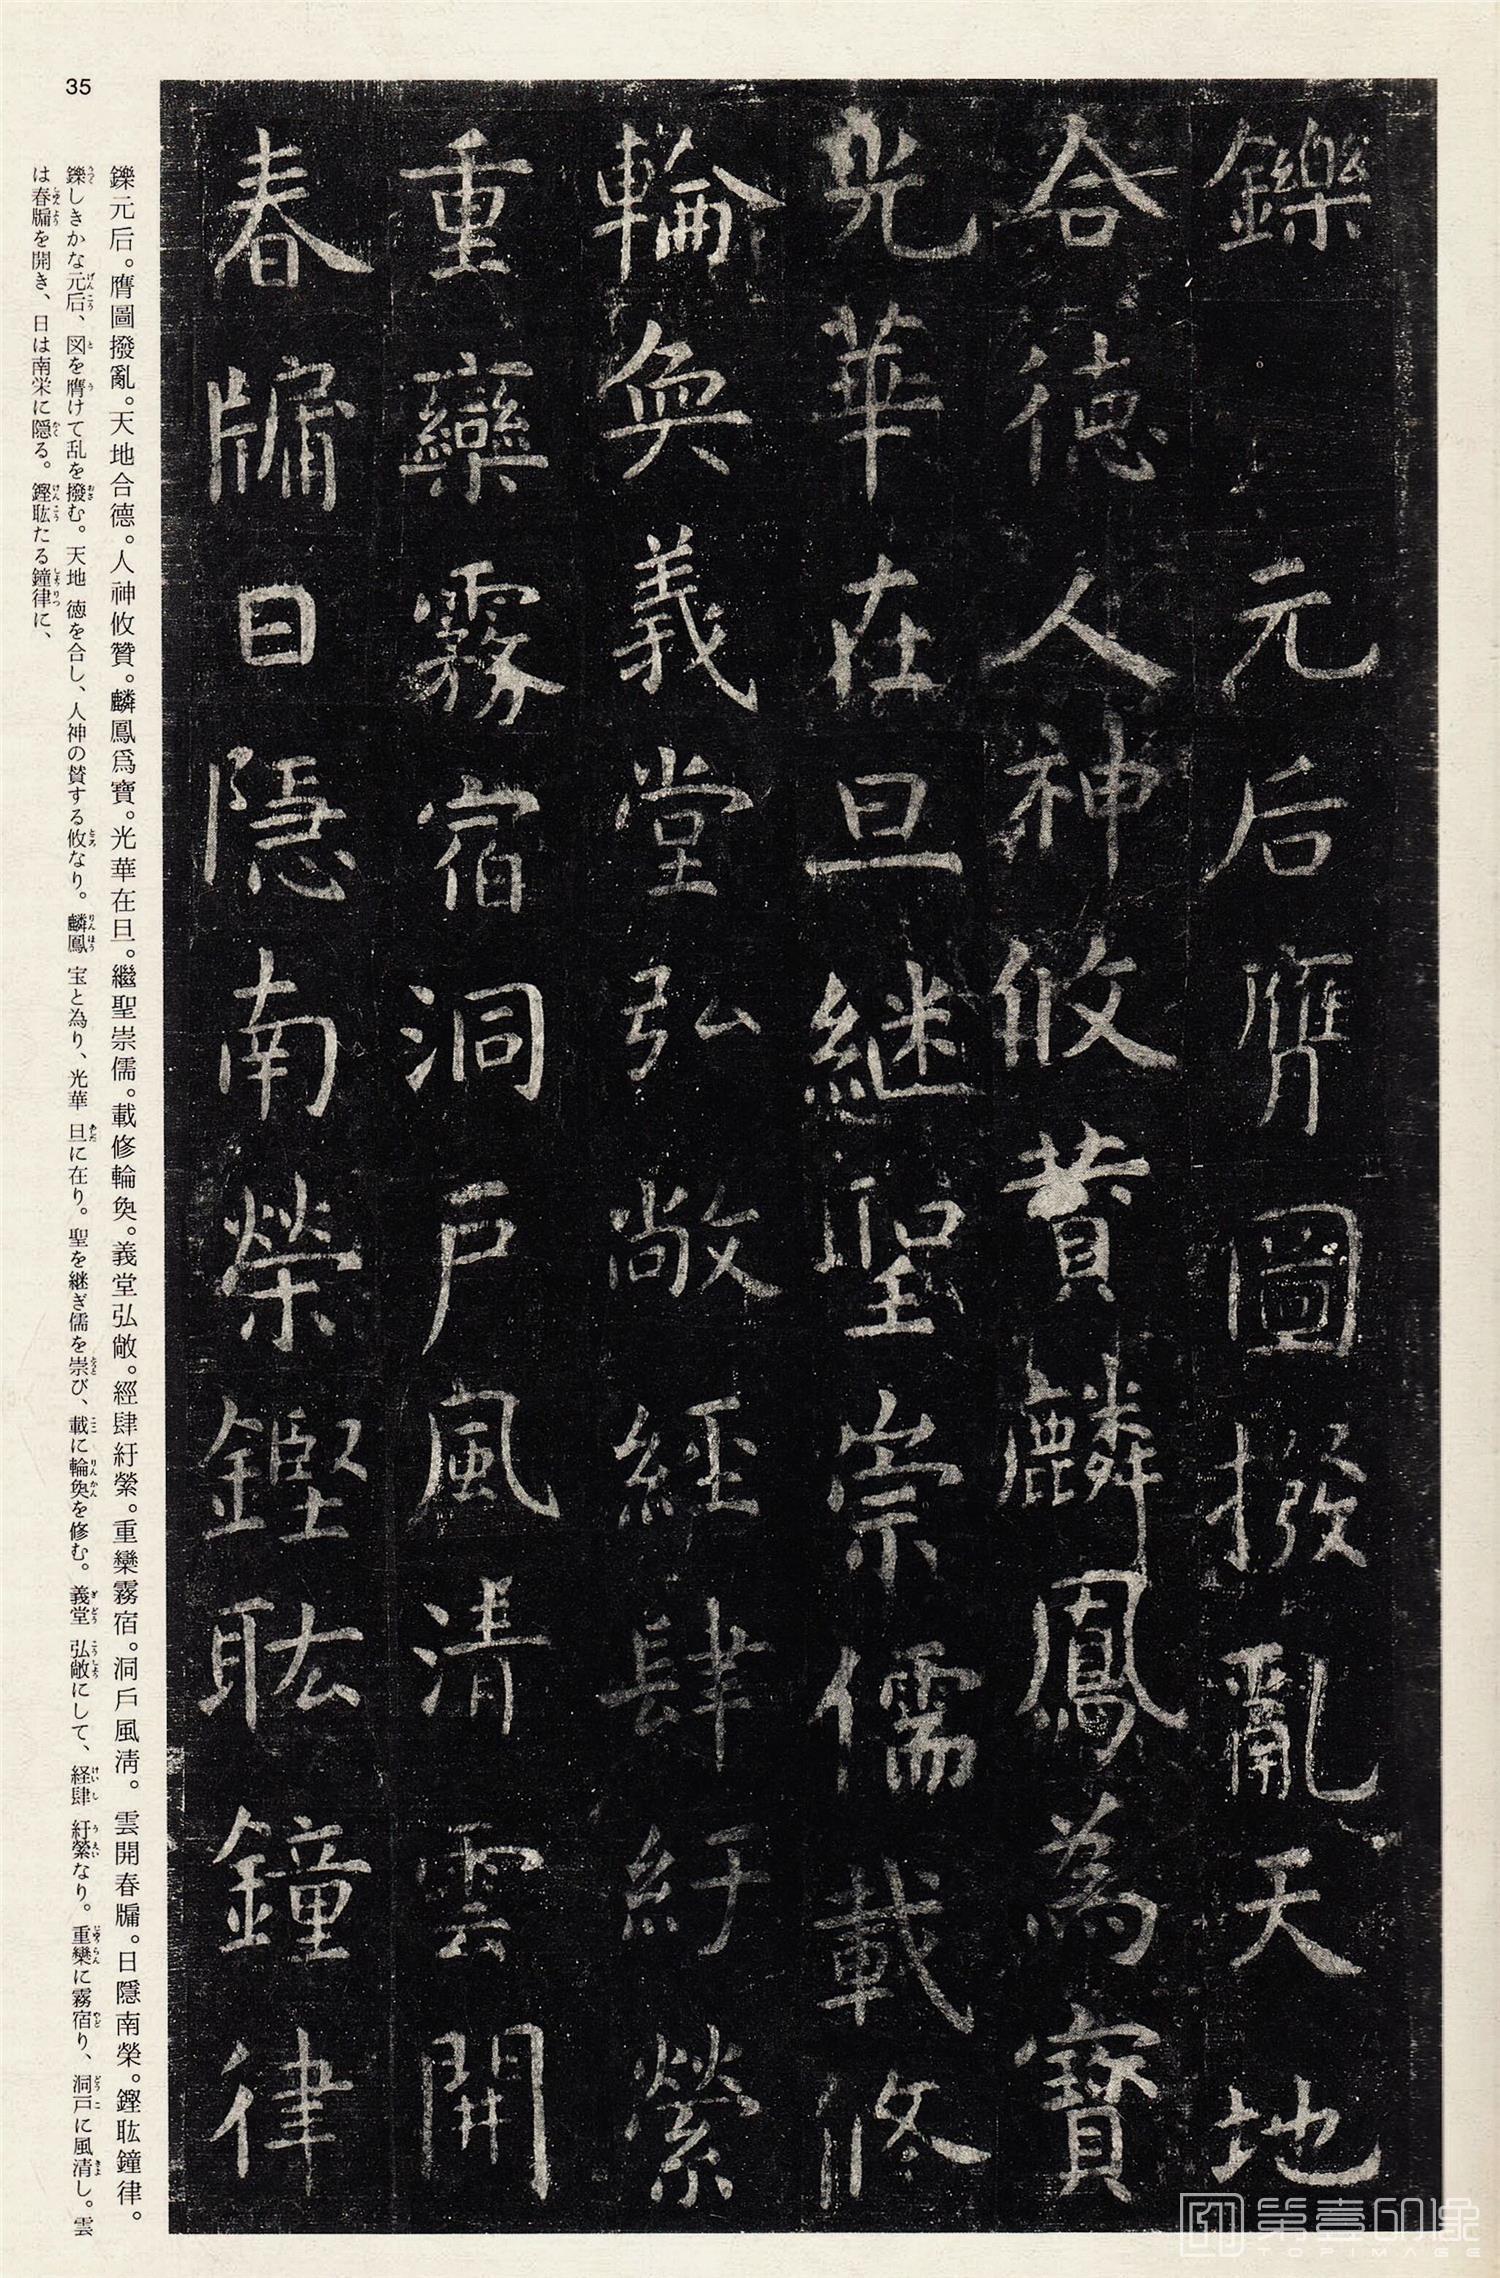 鑠元后膺圖撥亂天地
合德人神攸贊麟鳳為寶
光華在旦継聖崇儒載修
輪奐義堂弘敞經肆紆縈
重欒霧宿洞戶風清雲開
春牖日隱南榮鏗耾鐘律
35
鑠元后。膺圖撥亂。天地合德。人神攸贊。麟鳳爲寶。光華在旦。繼聖崇儒。載修輪奐。義堂弘敞。經肆紆縈。重欒霧宿。洞戶風淸。雲開春牖。日隱南榮。鏗耾鐘律。
鑠しきかな元后、図を膺けて乱を撥む。天地 徳を合し、人神の賛する攸なり。麟鳳 宝と為り、光華 旦に在り。聖を継ぎ儒を崇び、載に輪奐を修む。義堂 弘敞にして、経肆 紆縈なり。重欒に霧宿り、洞戸に風清し。雲
は春牖を開き、日は南栄に隠る。鏗耾たる鐘律に、
第壹印像
TOPIMAGE